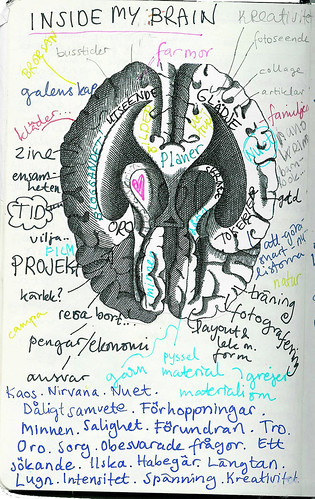 INSIDE MY BRAIN
Kreativitet
BRORSAN
busstider
farmor
fotoseende
galenskap
collage
artiklar
kläder...
familjen
VISEENDE
GLÄDJE
BLOGGANDET
Planer
zine
ensam-
heten
TID
vilja..
FILM
ORO
IDÉERIER
gtd
att-göra
listorna
natur
PROJEKT
kärlek?
resa bort...
träning
fotografering
campa
pengar/ekonomi
layout &
lek m.
form
ansvar
garn
pyssel
material
grejer
materialism
Kaos. Nirvana. Nuet.
Dåligt samvete. Förhoppningar.
Minnen. Salighet. Förundran. Tro.
Oro. Sorg. Obesvarade frågor. Ett
sökande. Ilska. Habegär. Längtan.
Lugn. Intensitet. Spänning. Kreativitet.